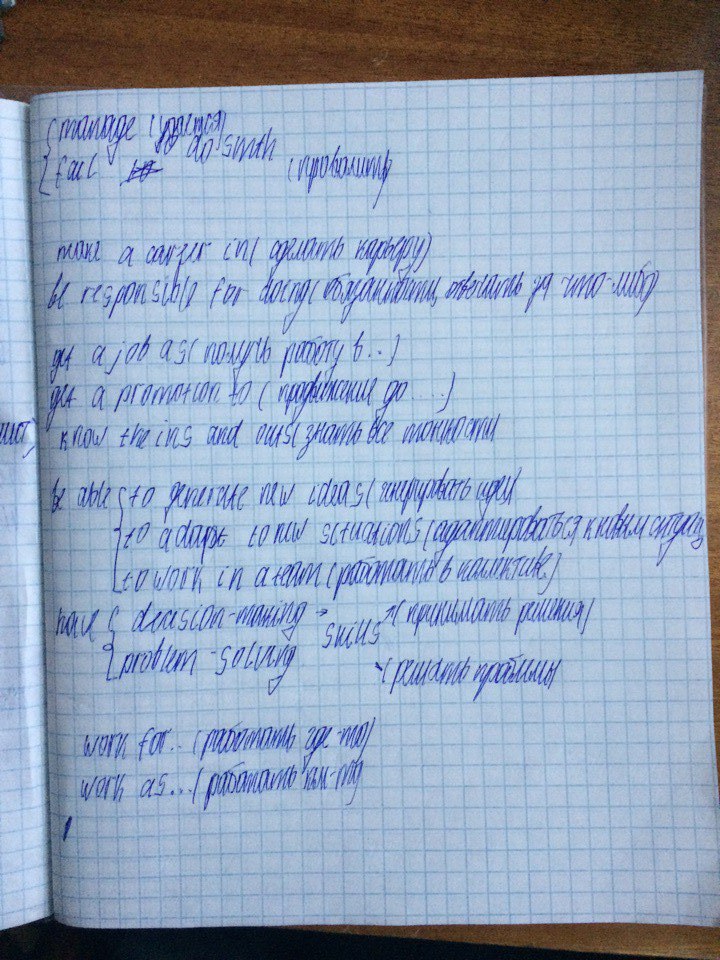 manage (удаётся)
fail to do smth (провалить)
make a career in (сделать карьеру)
be responsible for doing (обязанности, отвечать за что-либо)
get a job as (получь работу в...)
get a promotion to (продвижение до....)
know the ins and outs (знать все тонкости
be able to generate new ideas (генерировать идеи)
to adapt to new situations (адаптироваться к новым ситуац
to work in a team (работать в коллективе)
have decision-making skills (принимать решения)
problem-solving (решать проблемы
work for.. (работать где-то)
work as... (работать кем-то)